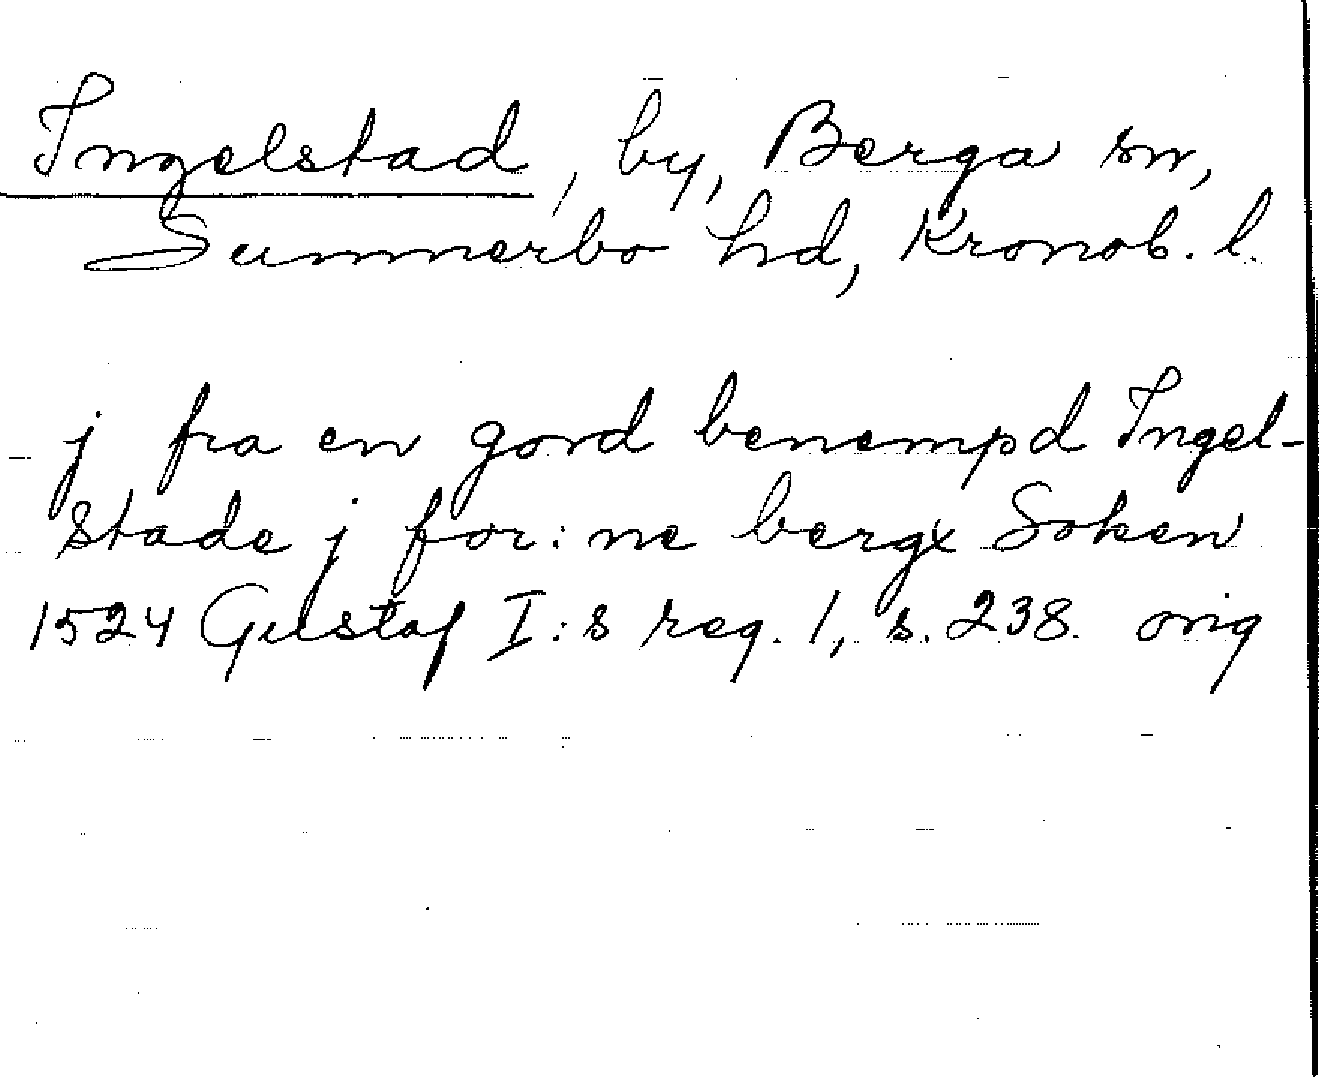 Ingelstad, by, Berga sn,
Sunnerbo hd, Kronob. l.
j fra en gord benempd Ingel-
stade j for: ne bergx Soken
1524 Gustaf I:s reg. 1, s. 238. orig